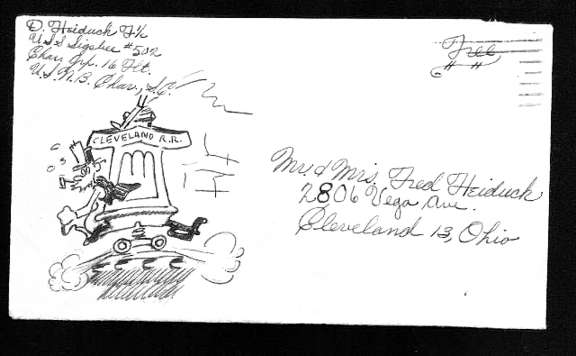 D. Heiduck F 1/c
U.S.S. Sigsbee #502
Char. Grp. 16 Flt.
U.S.N.B. Char., S.C.
Free
CLEVELAND R.R.
Mr & Mrs. Fred Heiduck
2806 Vega Ave.
Cleveland 13, Ohio